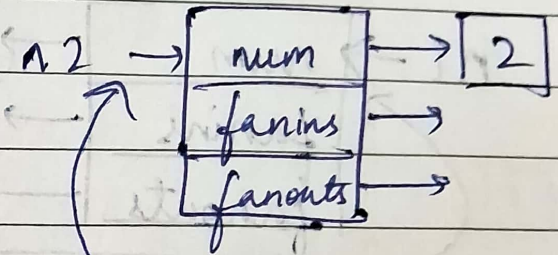 n2 num 2
fanins
fanouts